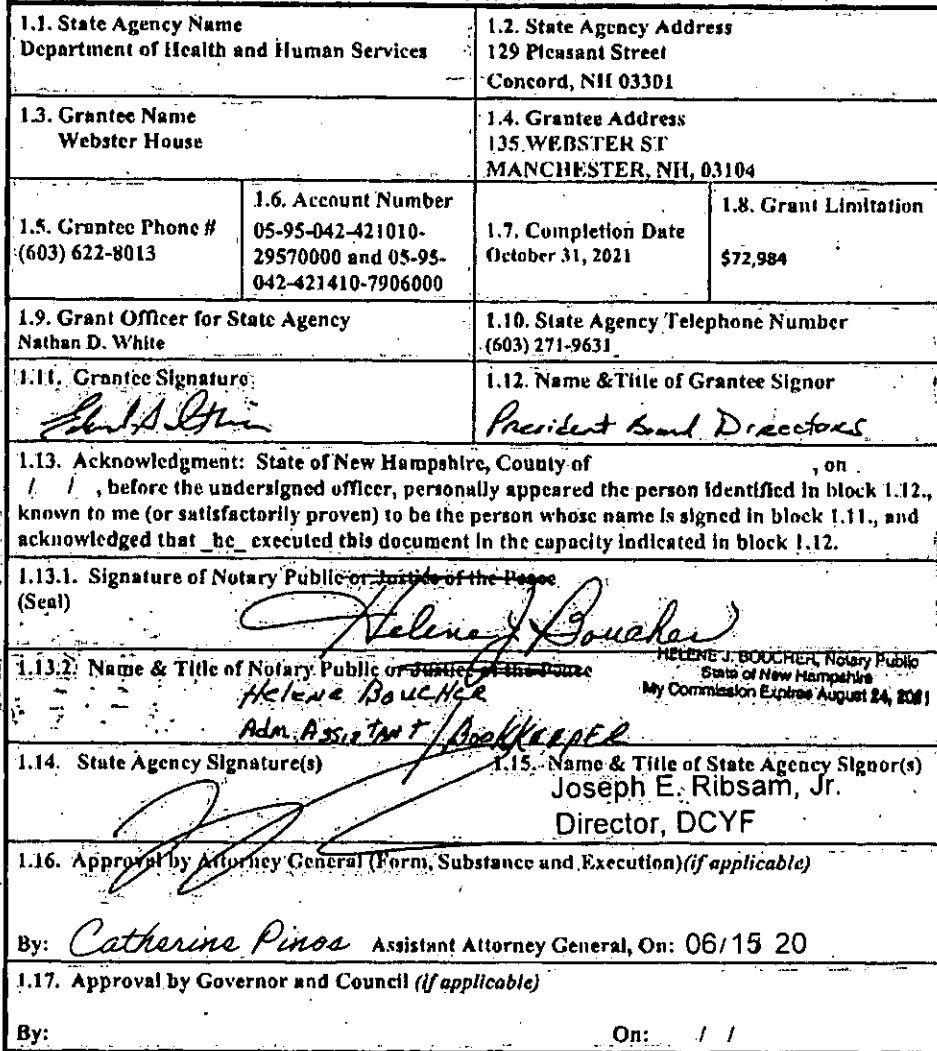 1.1. State Agency Name
Department of Health and Human Services
1.2. State Agency Address
129 Pleasant Street
Concord, NH 03301
1.3. Grantee Name
Webster House
1.4. Grantee Address
135 WEBSTER ST
MANCHESTER, NH, 03104
1.5. Grantee Phone #
(603) 622-8013
1.6. Account Number
05-95-042-421010-
29570000 and 05-95-
042-421410-7906000
1.7. Completion Date
October 31, 2021
1.8. Grant Limitation
$72,984
1.9. Grant Officer for State Agency
Nathan D. White
1.10. State Agency Telephone Number
(603) 271-9631
1.11. Grantee Signature
1.12. Name & Title of Grantee Signor
President Board Directors
1.13. Acknowledgment: State of New Hampshire, County of , on
/ / , before the undersigned officer, personally appeared the person identified in block 1.12.,
known to me (or satisfactorily proven) to be the person whose name is signed in block 1.11., and
acknowledged that _he_ executed this document in the capacity indicated in block 1.12.
1.13.1. Signature of Notary Public or Justice of the Peace
(Seal)
Helene J Boucher
1.13.2. Name & Title of Notary Public or Justice of the Peace
HELENE J. BOUCHER, Notary Public
State of New Hampshire
My Commission Expires August 24, 2021
Helene Boucher
Adm. Assistant / Bookkeeper
1.14. State Agency Signature(s)
1.15. Name & Title of State Agency Signor(s)
Joseph E. Ribsam, Jr.
Director, DCYF
1.16. Approval by Attorney General (Form, Substance and Execution) (if applicable)
By: Catherine Pinos Assistant Attorney General, On: 06/15 20
1.17. Approval by Governor and Council (if applicable)
By: On: / /